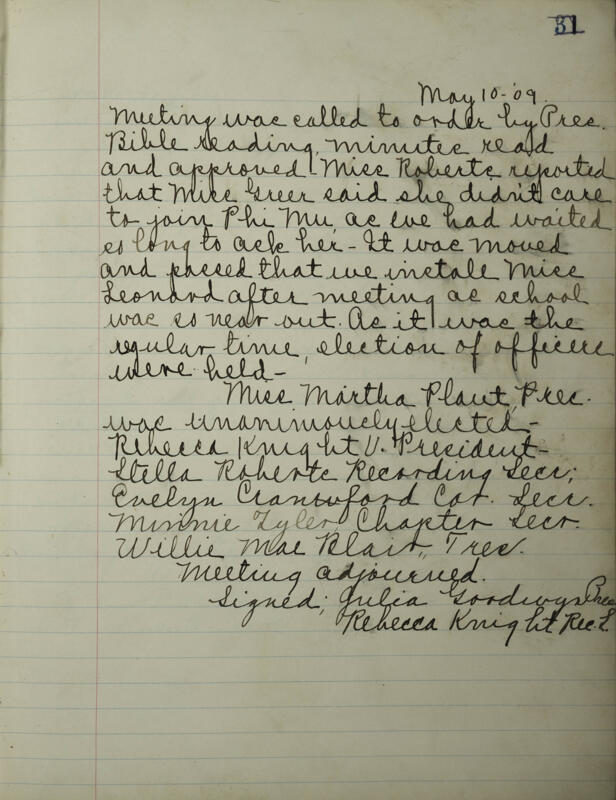 31
May 10-'09.
Meeting was called to order by Pres.
Bible reading, minutes read
and approved. Miss Roberts reported
that Miss Greer said she didn't care
to join Phi Mu, as we had waited
so long to ask her - It was moved
and passed that we install Miss
Leonard after meeting as school
was so near out. As it was the
regular time, election of officers
were held -
Miss Martha Plant, Pres.
was unanimously elected -
Rebecca Knight V. President -
Stella Roberts Recording Secr;
Evelyn Cranwford Cor. Secr.
Minnie Tyler, Chapter Secr.
Willie Mae Blair, Tres.
Meeting adjourned.
Signed; Julia Goodwyn Pres
Rebecca Knight Rec. S.